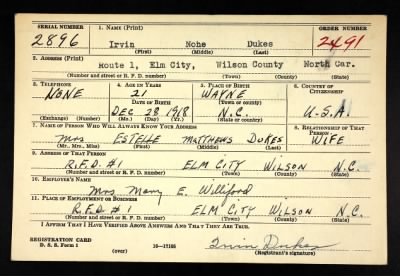 SERIAL NUMBER 1. NAME (Print) ORDER NUMBER
2896 Irvin Nohe Dukes 2491
(First) (Middle) (Last)
2. ADDRESS (Print)
Route 1, Elm City, Wilson County North Car.
(Number and street or R. F. D. number) (Town) (County) (State)
3. TELEPHONE 4. AGE IN YEARS 5. PLACE OF BIRTH 6. COUNTRY OF CITIZENSHIP
NONE 21 WAYNE
DATE OF BIRTH (Town or county)
DEC 28 1918 N.C. U.S.A.
(Exchange) (Number) (Mo.) (Day) (Yr.) (State or country)
7. NAME OF PERSON WHO WILL ALWAYS KNOW YOUR ADDRESS 8. RELATIONSHIP OF THAT PERSON
Mrs ESTELLE MATTHEWS DUKES WIFE
(Mr., Mrs., Miss) (First) (Middle) (Last)
9. ADDRESS OF THAT PERSON
R.F.D #1 ELM CITY WILSON N.C.
(Number and street or R. F. D. number) (Town) (County) (State)
10. EMPLOYER'S NAME
Mrs. Mary E. Williford
11. PLACE OF EMPLOYMENT OR BUSINESS
R.F.D #1 ELM CITY WILSON N.C.
(Number and street or R. F. D. number) (Town) (County) (State)
I AFFIRM THAT I HAVE VERIFIED ABOVE ANSWERS AND THAT THEY ARE TRUE.
REGISTRATION CARD
D. S. S. Form 1 16—17105 Irvin Dukes
(over) (Registrant's signature)